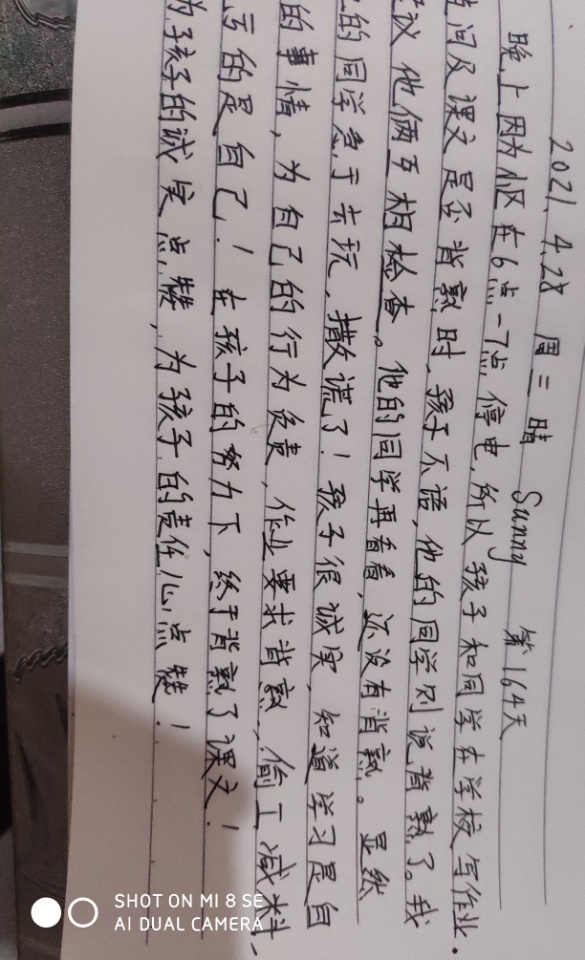 2021.4.28 周三 晴 Sunny 第164天
晚上因为小区在6点-7点停电,所以孩子和同学在学校写作业.
问及课文是否背熟时,孩子不语,他的同学则说背熟了。我
议他俩互相检查。他的同学再看看,还没有背熟。显然
的同学急于去玩,撒谎了!孩子很诚实,知道学习是自
的事情,为自己的行为负责,作业要求背熟,偷工减料,
亏的是自己!在孩子的努力下,终于背熟了课文!
为孩子的诚实点赞,为孩子的责任心点赞!
SHOT ON MI 8 SE
AI DUAL CAMERA